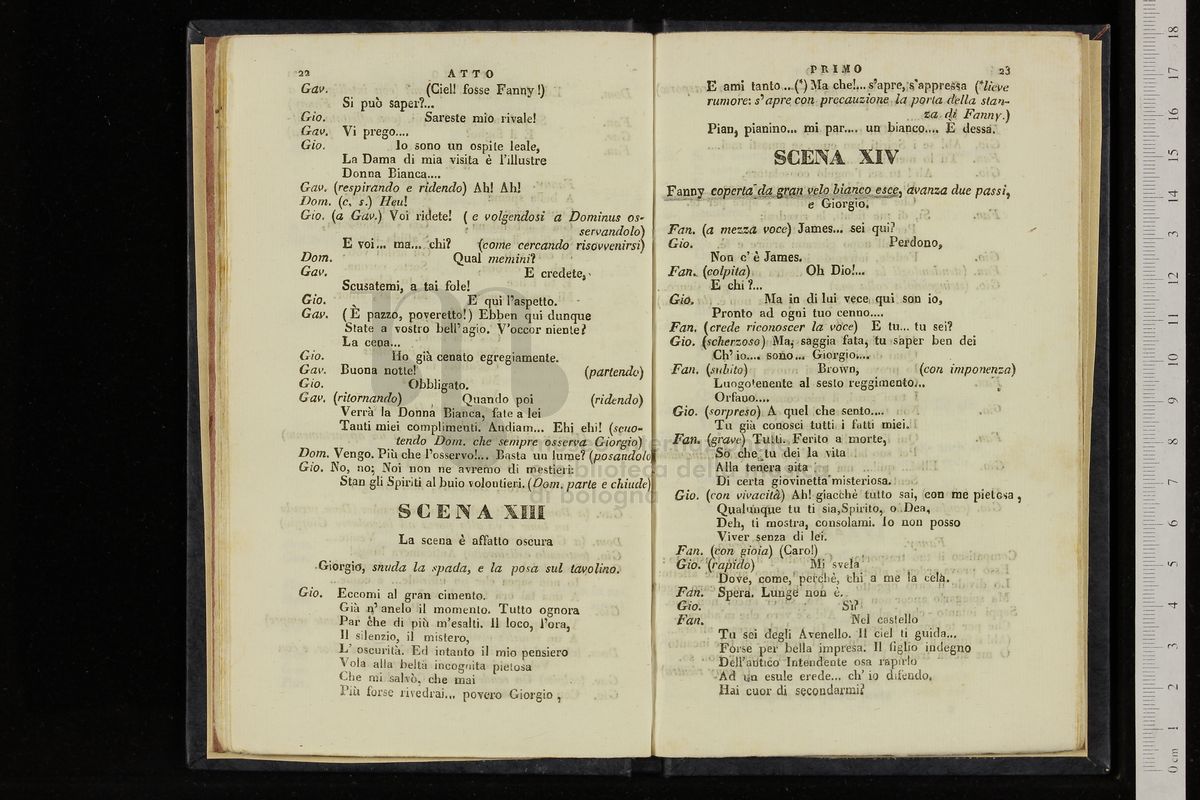 22 ATTO
Gav. (Ciel! fosse Fanny!)
Si può saper?...
Gio. Sareste mio rivale!
Gav. Vi prego....
Gio. Io sono un ospite leale,
La Dama di mia visita è l'illustre
Donna Bianca....
Gav. (respirando e ridendo) Ah! Ah!
Dom. (c. s.) Heu!
Gio. (a Gav.) Voi ridete! (e volgendosi a Dominus os-
servandolo)
E voi... ma... chi? (come cercando risovvenirsi)
Dom. Qual memini?
Gav. E credete,
Scusatemi, a tai fole!
Gio. E qui l'aspetto.
Gav. (È pazzo, poveretto!) Ebben qui dunque
State a vostro bell'agio. V'occor niente?
La cena...
Gio. Ho già cenato egregiamente.
Gav. Buona notte! (partendo)
Gio. Obbligato.
Gav. (ritornando) Quando poi (ridendo)
Verrà la Donna Bianca, fate a lei
Tanti miei complimenti. Andiam... Ehi ehi! (scuo-
tendo Dom. che sempre osserva Giorgio)
Dom. Vengo. Più che l'osservo!... Basta un lume? (posandolo
Gio. No, no: Noi non ne avremo di mestieri:
Stan gli Spiriti al buio volontieri. (Dom. parte e chiude)
SCENA XIII
La scena è affatto oscura
Giorgio, snuda la spada, e la posa sul tavolino.
Gio. Eccomi al gran cimento.
Già n'anelo il momento. Tutto ognora
Par che di più m'esalti. Il loco, l'ora,
Il silenzio, il mistero,
L' oscurità. Ed intanto il mio pensiero
Vola alla beltà incognita pietosa
Che mi salvò, che mai
Più forse rivedrai... povero Giorgio,
PRIMO 23
E ami tanto...(*) Ma che!... s'apre, s'appressa (*lieve
rumore: s'apre con precauzione la porta della stan-
za di Fanny.)
Pian, pianino... mi par.... un bianco.... È dessa.
SCENA XIV
Fanny coperta da gran velo bianco esce, avanza due passi,
e Giorgio.
Fan. (a mezza voce) James... sei qui?
Gio. Perdono,
Non c' è James.
Fan. (colpita) Oh Dio!...
E chi?...
Gio. Ma in di lui vece qui son io,
Pronto ad ogni tuo cenno....
Fan. (crede riconoscer la voce) E tu... tu sei?
Gio. (scherzoso) Ma, saggia fata, tu saper ben dei
Ch' io.... sono... Giorgio....
Fan. (subito) Brown, (con imponenza)
Luogotenente al sesto reggimento...
Orfano....
Gio. (sorpreso) A quel che sento....
Tu già conosci tutti i fatti miei.
Fan. (grave) Tutti. Ferito a morte,
So che tu dei la vita
Alla tenera aita
Di certa giovinetta misteriosa.
Gio. (con vivacità) Ah! giacchè tutto sai, con me pietosa,
Qualunque tu ti sia, Spirito, o Dea,
Deh, ti mostra, consolami. Io non posso
Viver senza di lei.
Fan. (con gioia) (Caro!)
Gio. (rapido) Mi svela
Dove, come, perchè, chi a me la cela.
Fan. Spera. Lunge non è.
Gio. Sì?
Fan. Nel castello
Tu sei degli Avenello. Il ciel ti guida...
Forse per bella impresa. Il figlio indegno
Dell'antico Intendente osa rapirlo
Ad un esule erede... ch' io difendo,
Hai cuor di secondarmi?
museo internazionale
biblioteca della musica
di bologna
0 cm 1 2 3 4 5 6 7 8 9 10 11 12 13 14 15 16 17 18